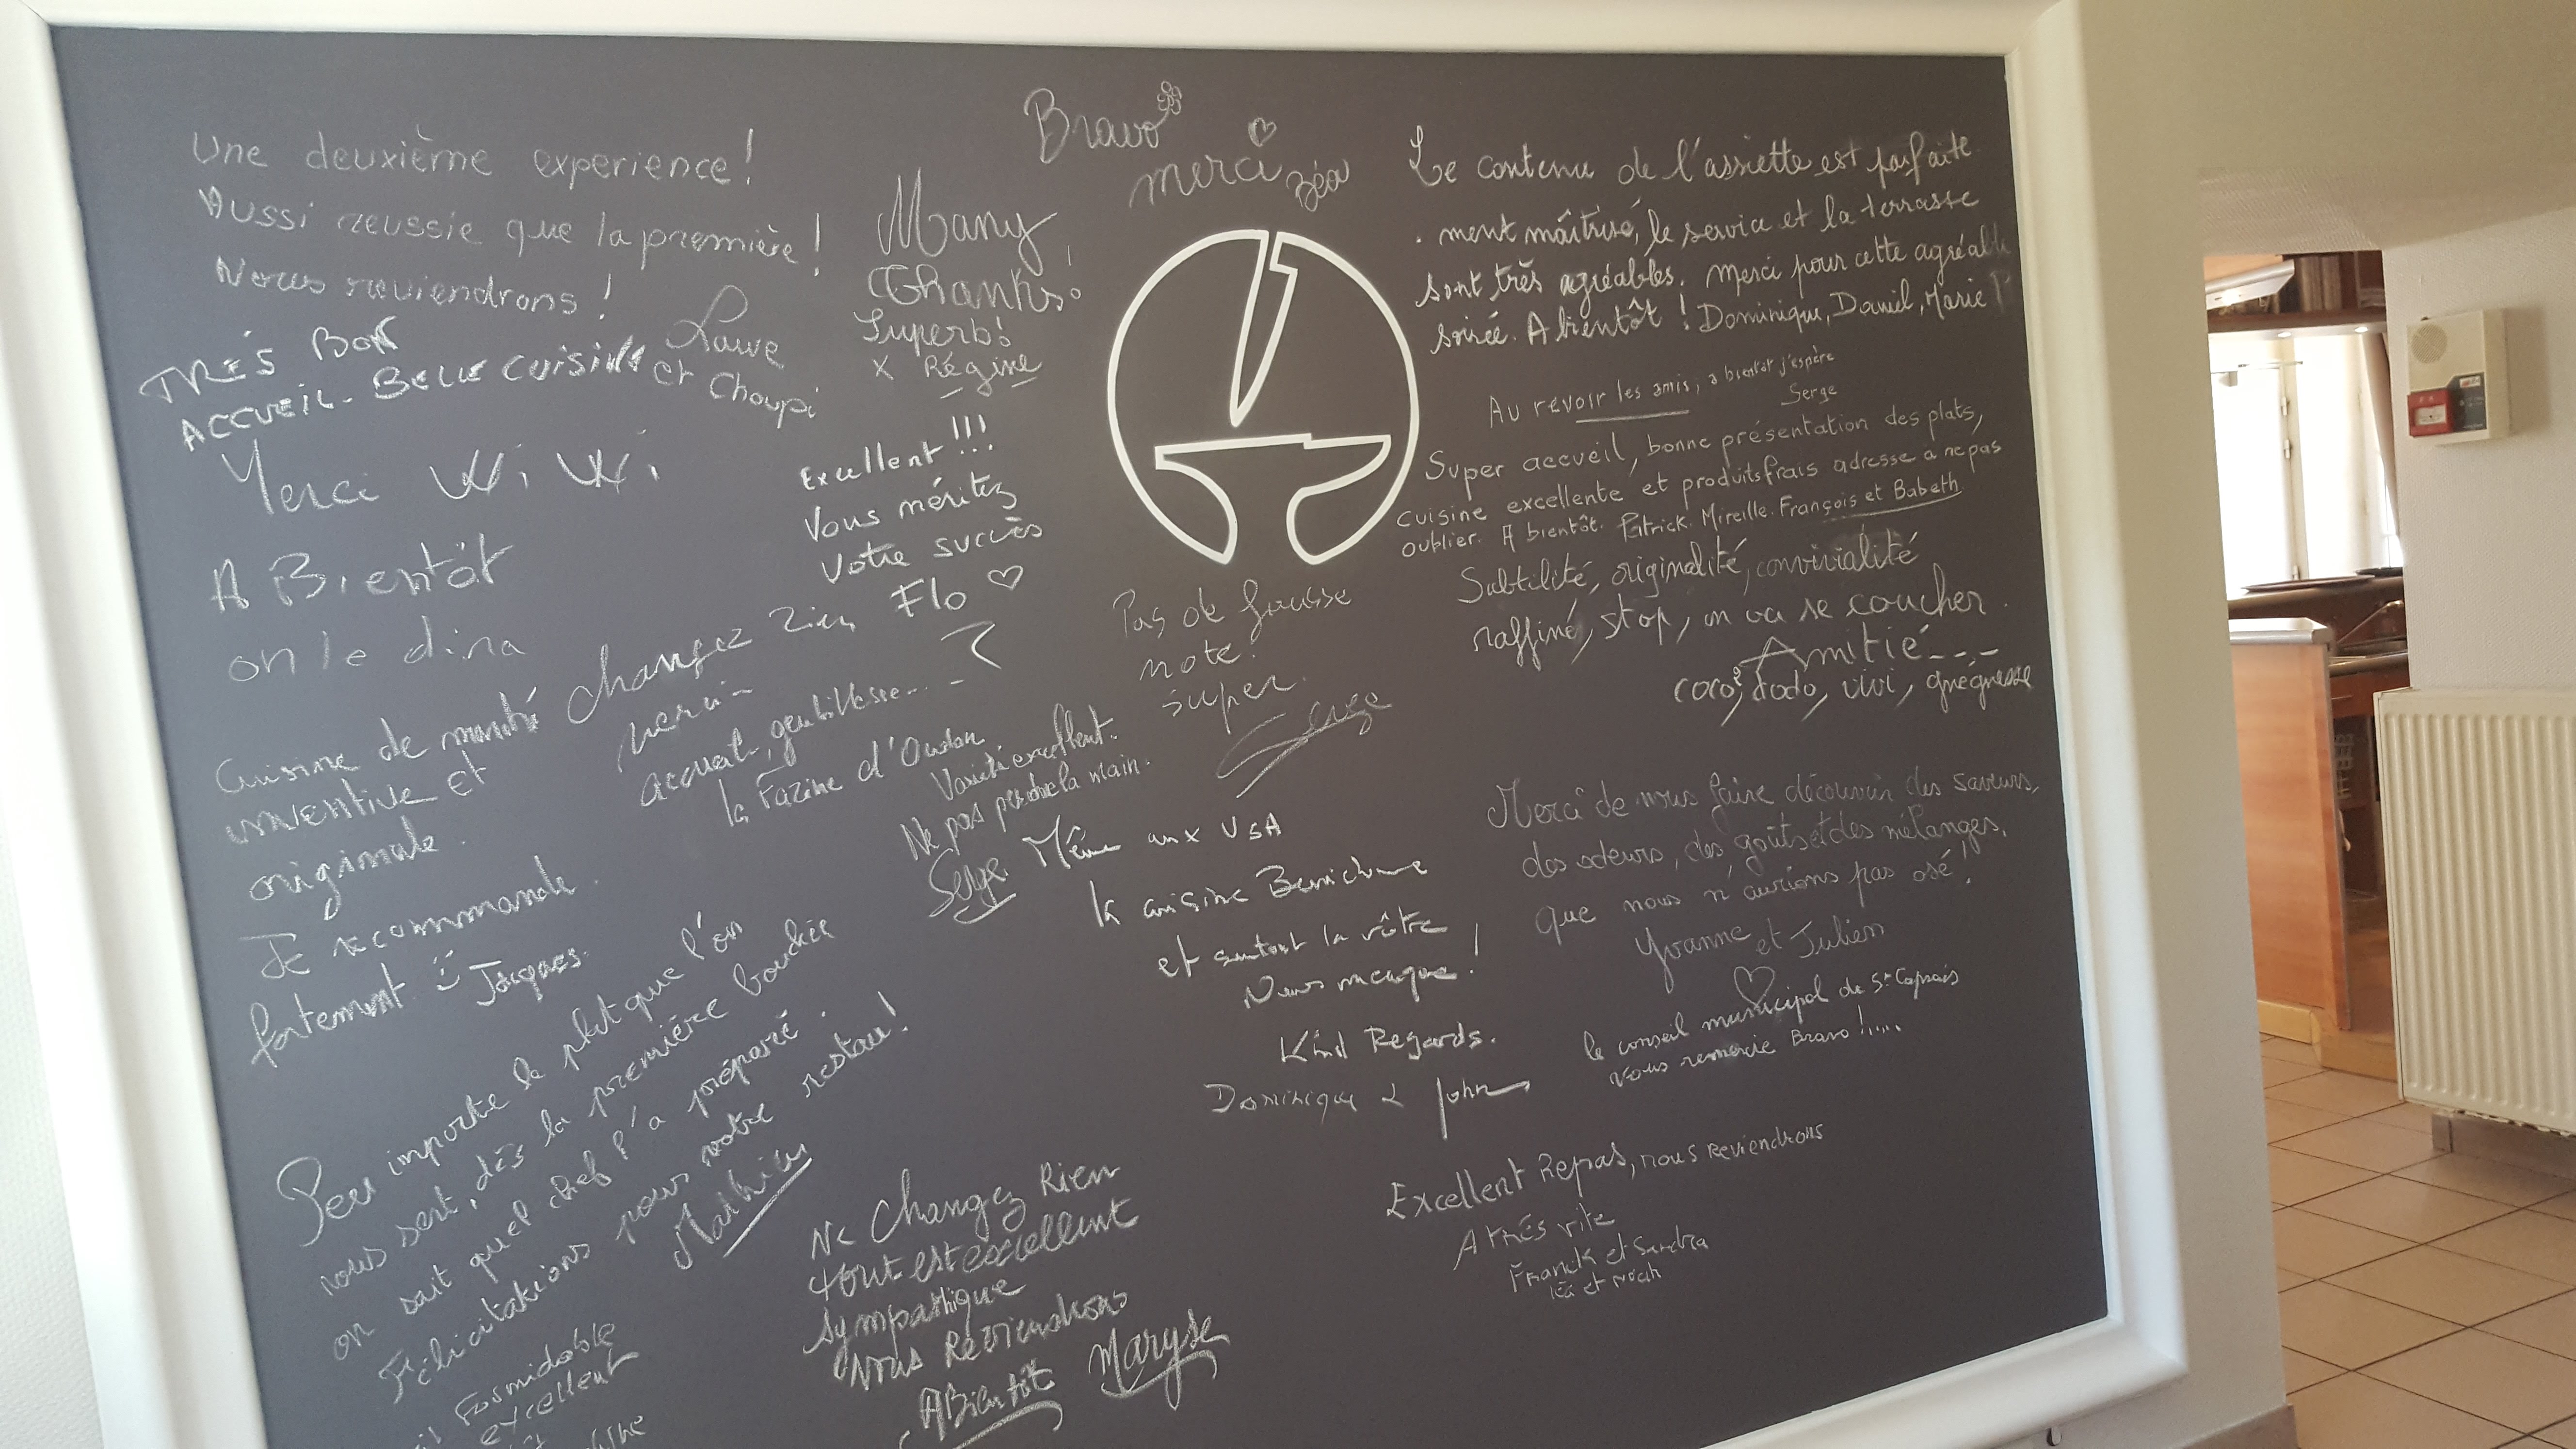 Bravo
merci
Zéa
Une deuxième experience!
Aussi reussie que la première!
Nous reviendrons!
Laure
et Choupi
TRÉS BON
ACCUEIL - BELLE CUISINE
Merci Wi Wi
A Bientôt
on le dira
Many
Thanks!
Superb!
X Régine
Excellent!!!
Vous méritez
Votre succès
Flo ♡
changez rien
merci
accueil, gentillesse...
la d'Oudon
Cuisine de
inventive et
originale.
Je recommande
fortement Jacques.
Peu importe le plat que l'on
nous sert, dès la première bouchée
on sait quel chef l'a préparé.
Félicitations pour votre restau!
Mathieu
Formidable
excellent
Pas de fausse
note.
super.
Serge
excellent.
Ne pas perdre la main.
Serge
Même aux USA
la cuisine Berrichonne
et surtout la vôtre
Nous manque!
Kind Regards.
Dominique & John
Ne Changez Rien
tout est excellent
sympathique
Nous Reviendrons
A Bientôt Maryse
Le contenu de l'assiette est parfaite
. ment maîtrisé, le service et la terrasse
sont très agréables. Merci pour cette agréable
soirée. A bientôt! Dominique, Daniel, Marie P
Au revoir les amis, a bientot j'espère
Serge
Super accueil, bonne présentation des plats,
cuisine excellente et produits frais adresse à ne pas
oublier. A bientôt. Patrick. Mireille. François et Babeth.
Subtilité, originalité, convivialité
raffiné, stop, on va se coucher.
Amitié---
coco, dodo, vivi,
Merci de nous faire découvrir des saveurs,
des odeurs, des goûts et des mélanges,
que nous n'aurions pas osé!
Yvanne et Julien
♡
le conseil municipal de St Caprais
vous remercie Bravo!.....
Excellent Repas, nous reviendrons
A trés vite
Franck et Sandra
Léa et Noah